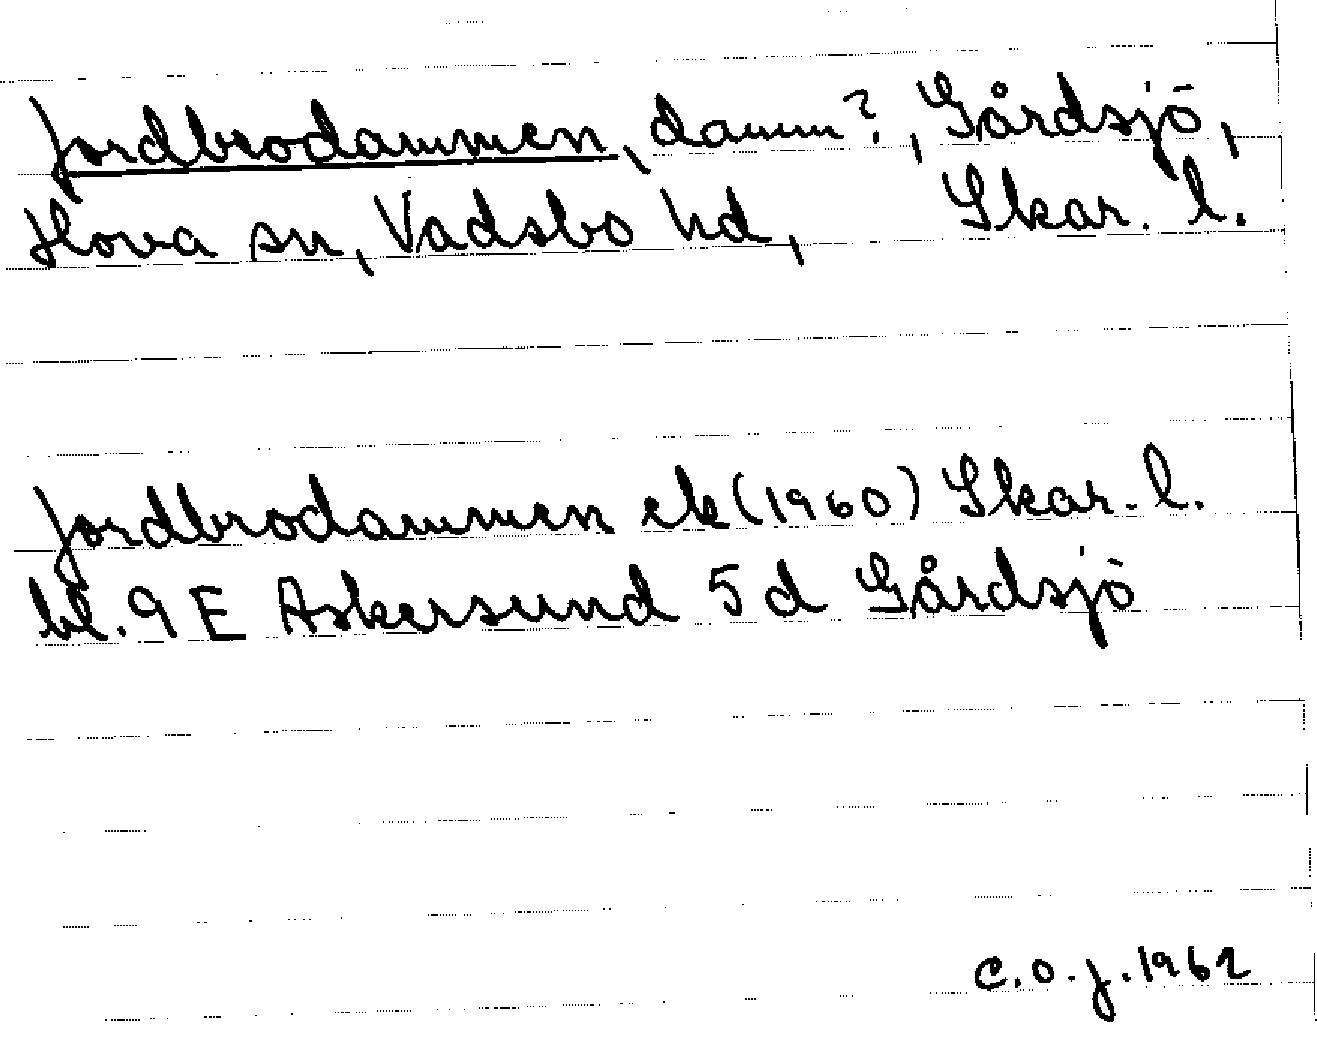 Jordbrodammen, damm?, Gårdsjö,
Hova sn, Vadsbo hd, Skar. l.
Jordbrodammen ek (1960) Skar. l.
bl. 9 E Askersund 5 d Gårdsjö
C.O.J. 1962